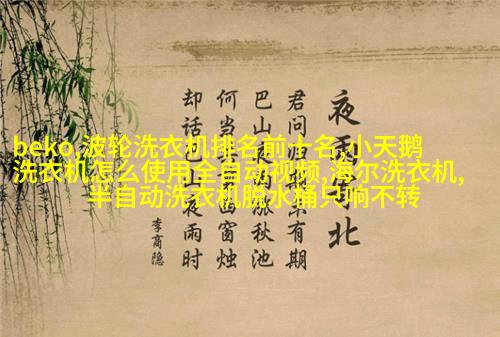 beko,波轮洗衣机排名前十名,小天鹅
洗衣机怎么使用全自动视频,海尔洗衣机,
半自动洗衣机脱水桶只响不转
夜雨北
君问有期
巴山涨秋池
何当窗烛
却话夜雨时
李商隐